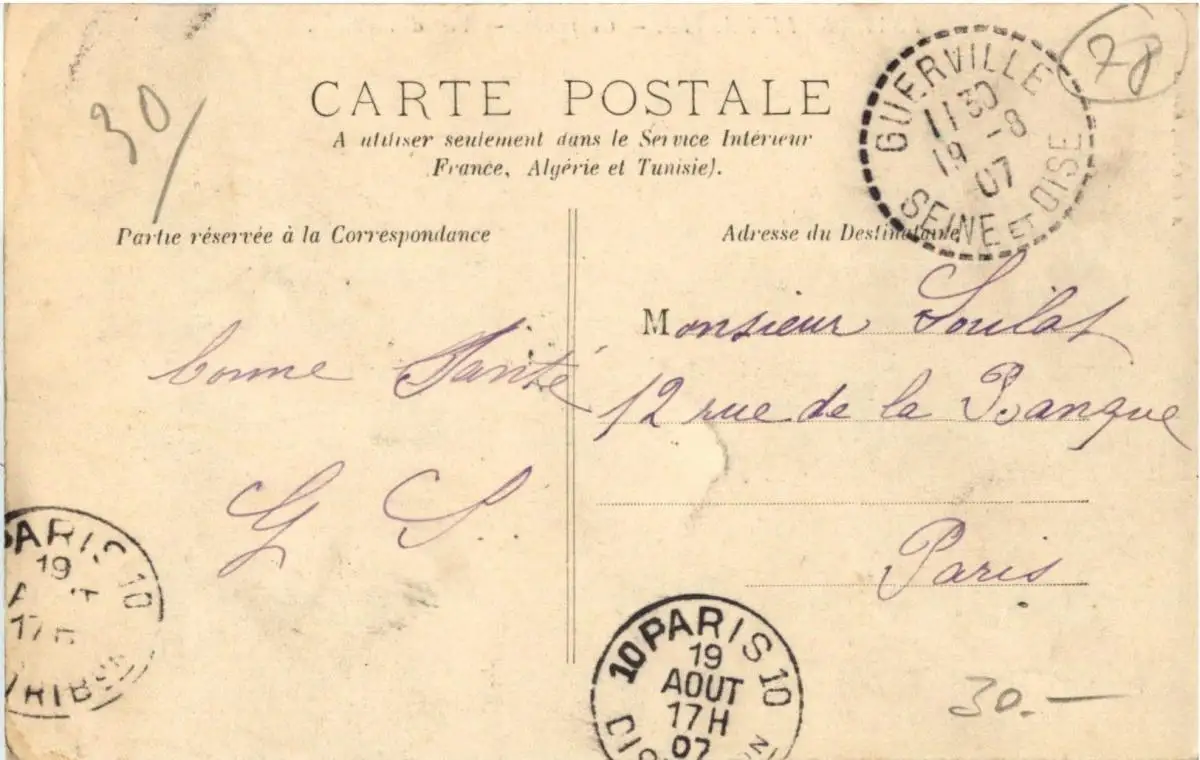 CARTE POSTALE
A utiliser seulement dans le Service Intérieur
France, Algérie et Tunisie).
Partie réservée à la Correspondance
Adresse du Destinataire
GUERVILLE
1130
19 -8
07
SEINE ET OISE
78
30/
Monsieur Soulat
12 rue de la Banque
Paris
bonne Santé
G S
PARIS 10
19
17H
10 PARIS 10
19
AOUT
17H
07
30.—